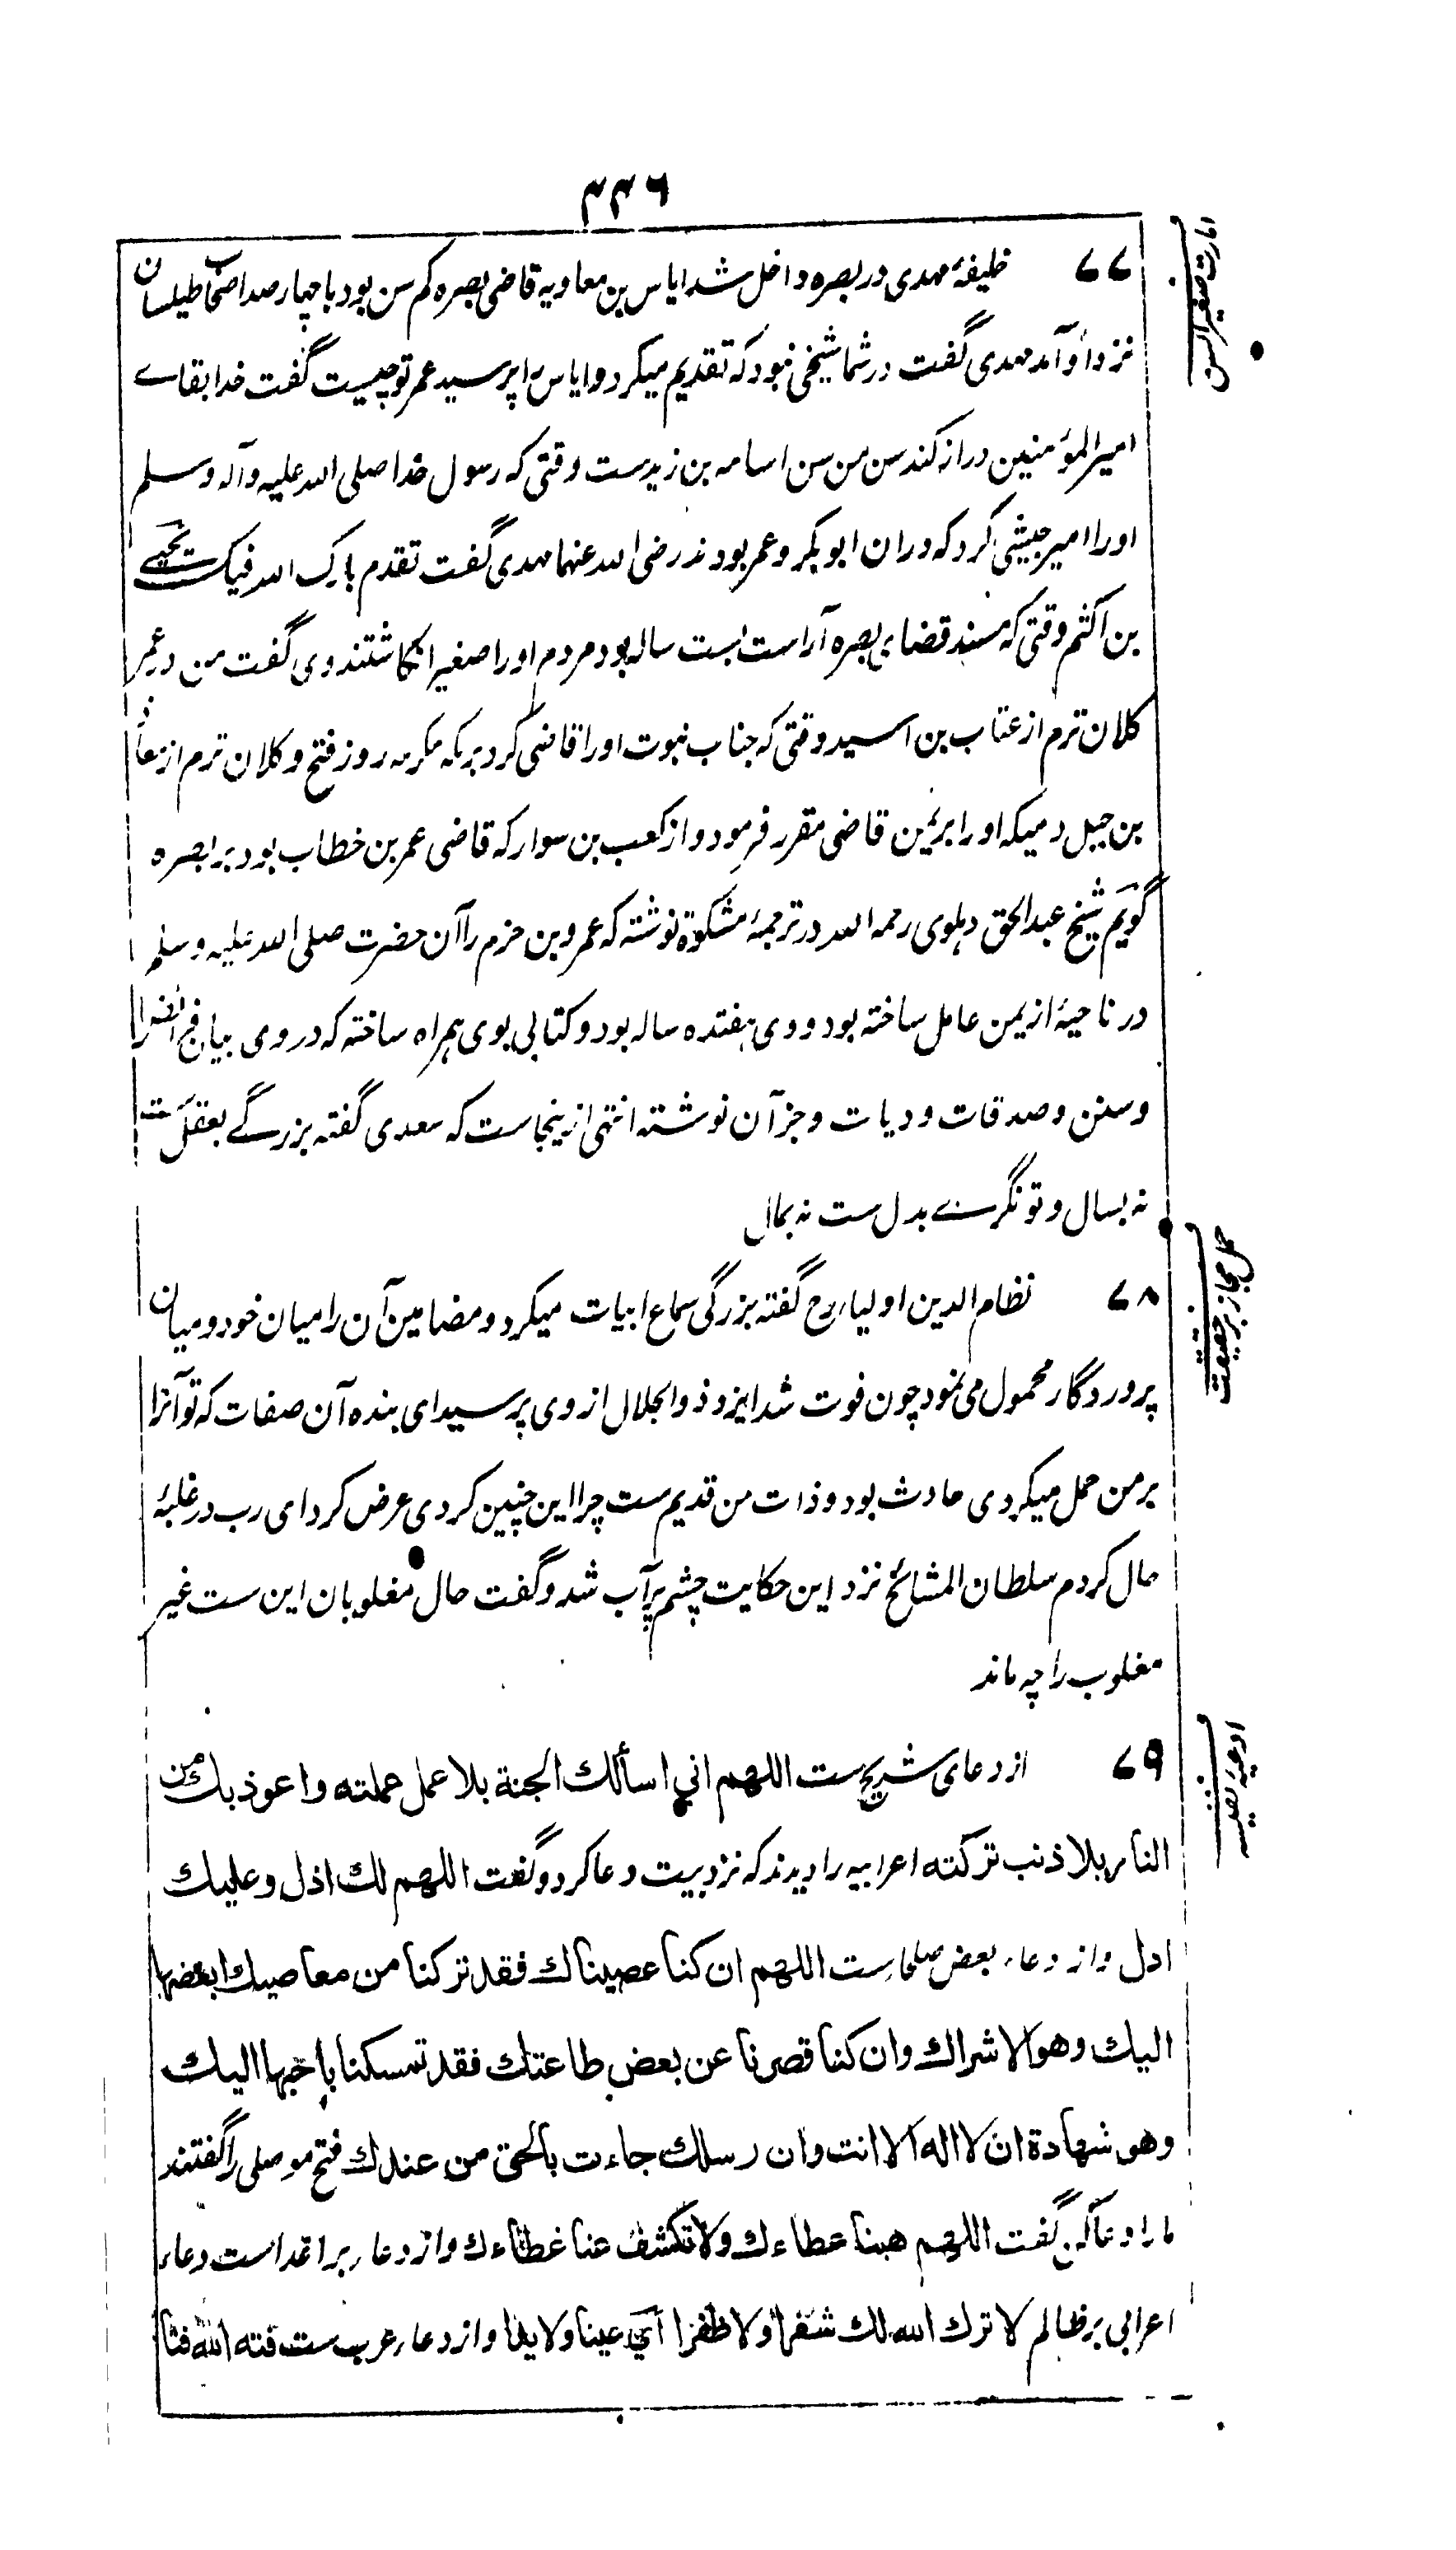 ۳۳۶
۷۷ خلیفهٔ مهدی در بصره داخل شد ایاس بن معاویه قاضی بصره کم سن بود با چهار صد اصحاب طیلسان
نزد او آمد مهدی گفت در شما شیخی نبود که تقدیم میکرد و ایاس را پرسید عمر تو چیست گفت خدا بقاے
امیرالمؤمنین دراز کند سن من سن اسامه بن زیدست وقتی که رسول خدا صلی الله علیه وآله وسلم
اورا امیر جیشی کرد که دران ابوبکر و عمر بودند رضی الله عنهما مهدی گفت تقدم بارک الله فیک یحیے
بن اکثم وقتی که مسند قضای بصره آراست بست ساله بود مردم اورا صغیر انگاشتند وی گفت من در عمر
کلان ترم از عتاب بن اسید وقتی که جناب نبوت اورا قاضی کرد بر مکه مکرمه روز فتح و کلان ترم از معاذ
بن جبل دمیکه اورا بر یمن قاضی مقرر فرمود و از کعب بن سوار که قاضی عمر بن خطاب بود بر بصره
گویم شیخ عبدالحق دهلوی رحمه الله در ترجمهٔ مشکوة نوشته که عمرو بن حزم را آن حضرت صلی الله علیه وسلم
در ناحیهٔ از یمن عامل ساخته بود و وی هفتده ساله بود و کتابی بوی همراه ساخته که در وی بیان فرائض
وسنن وصدقات ودیات وجز آن نوشته انتهی ازینجاست که سعدی گفته بزرگے بعقل ست
نه بسال و تونگرے بدل ست نه بمال
۷۸ نظام الدین اولیاء رح گفته بزرگی سماع ابیات میکرد و مضامین آن را میان خود و میان
پروردگار محمول می نمود چون فوت شد ایزد ذوالجلال از وی پرسید ای بنده آن صفات که تو آنرا
بر من حمل میکردی حادث بود و ذات من قدیم ست چرا این چنین کردی عرض کرد ای رب در غلبهٔ
حال کردم سلطان المشائخ نزد این حکایت چشم پرآب شد وگفت حال مغلوبان این ست غیر
مغلوب را چه ماند
۷۹ از دعای شریح ست اللهم انی اسألك الجنة بلا عمل عملته واعوذ بك من
النار بلا ذنب تركته اعرابیه را دیدند که نزد بیت دعا کرد وگفت اللهم لك اذل وعلیك
ادل واز دعاء بعض صلحاست اللهم ان کنا عصیناك فقد ترکنا من معاصیك ابغضها
الیك وهو الاشراك وان کنا قصرنا عن بعض طاعتك فقد تمسکنا باحبها الیك
وهو شهادة ان لا اله الا انت وان رسلك جاءت بالحق من عندك فتح موصلی را گفتند
مارا دعا کن گفت اللهم هبنا عطاءك ولا تکشف عنا غطاءك واز دعاء بر اعداست دعاء
اعرابی بر ظالم لا ترك الله لك شفرا ولا ظفرا ای عینا ولا یدا واز دعاء عرب ست فته الله فتا
امارت صغیر السن
حمل مجاز بر حقیقت
ادعیهٔ